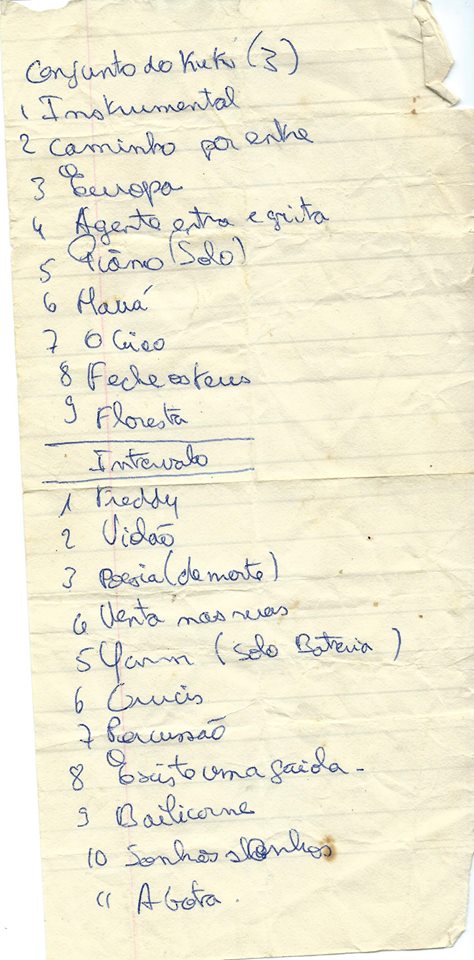 Conjunto do Kuki (3)
1 Instrumental
2 Caminho por entre
3 Europa
4 Agente entra e grita
5 Piano (Solo)
6 Mauá
7 O
8 Feche os teus
9 Floresta
Intervalo
1 Freddy
2 Vidão
3 Poesia (de morte)
4 Venta nas ruas
5 (Solo Bateria)
6 Crucis
7 Percussão
8 Existe uma saida -
9 Bailicorne
10 Sonhos
11 A Gota.